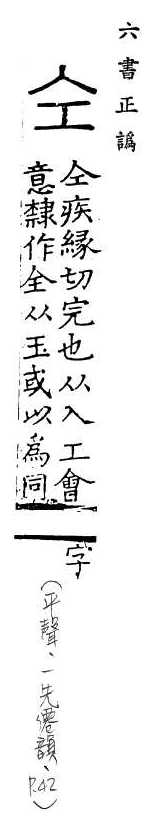 六書正譌
仝
仝疾緣切完也从入工會
意隸作全从玉或以為同
字
(平聲、一先僊韻、P.42)